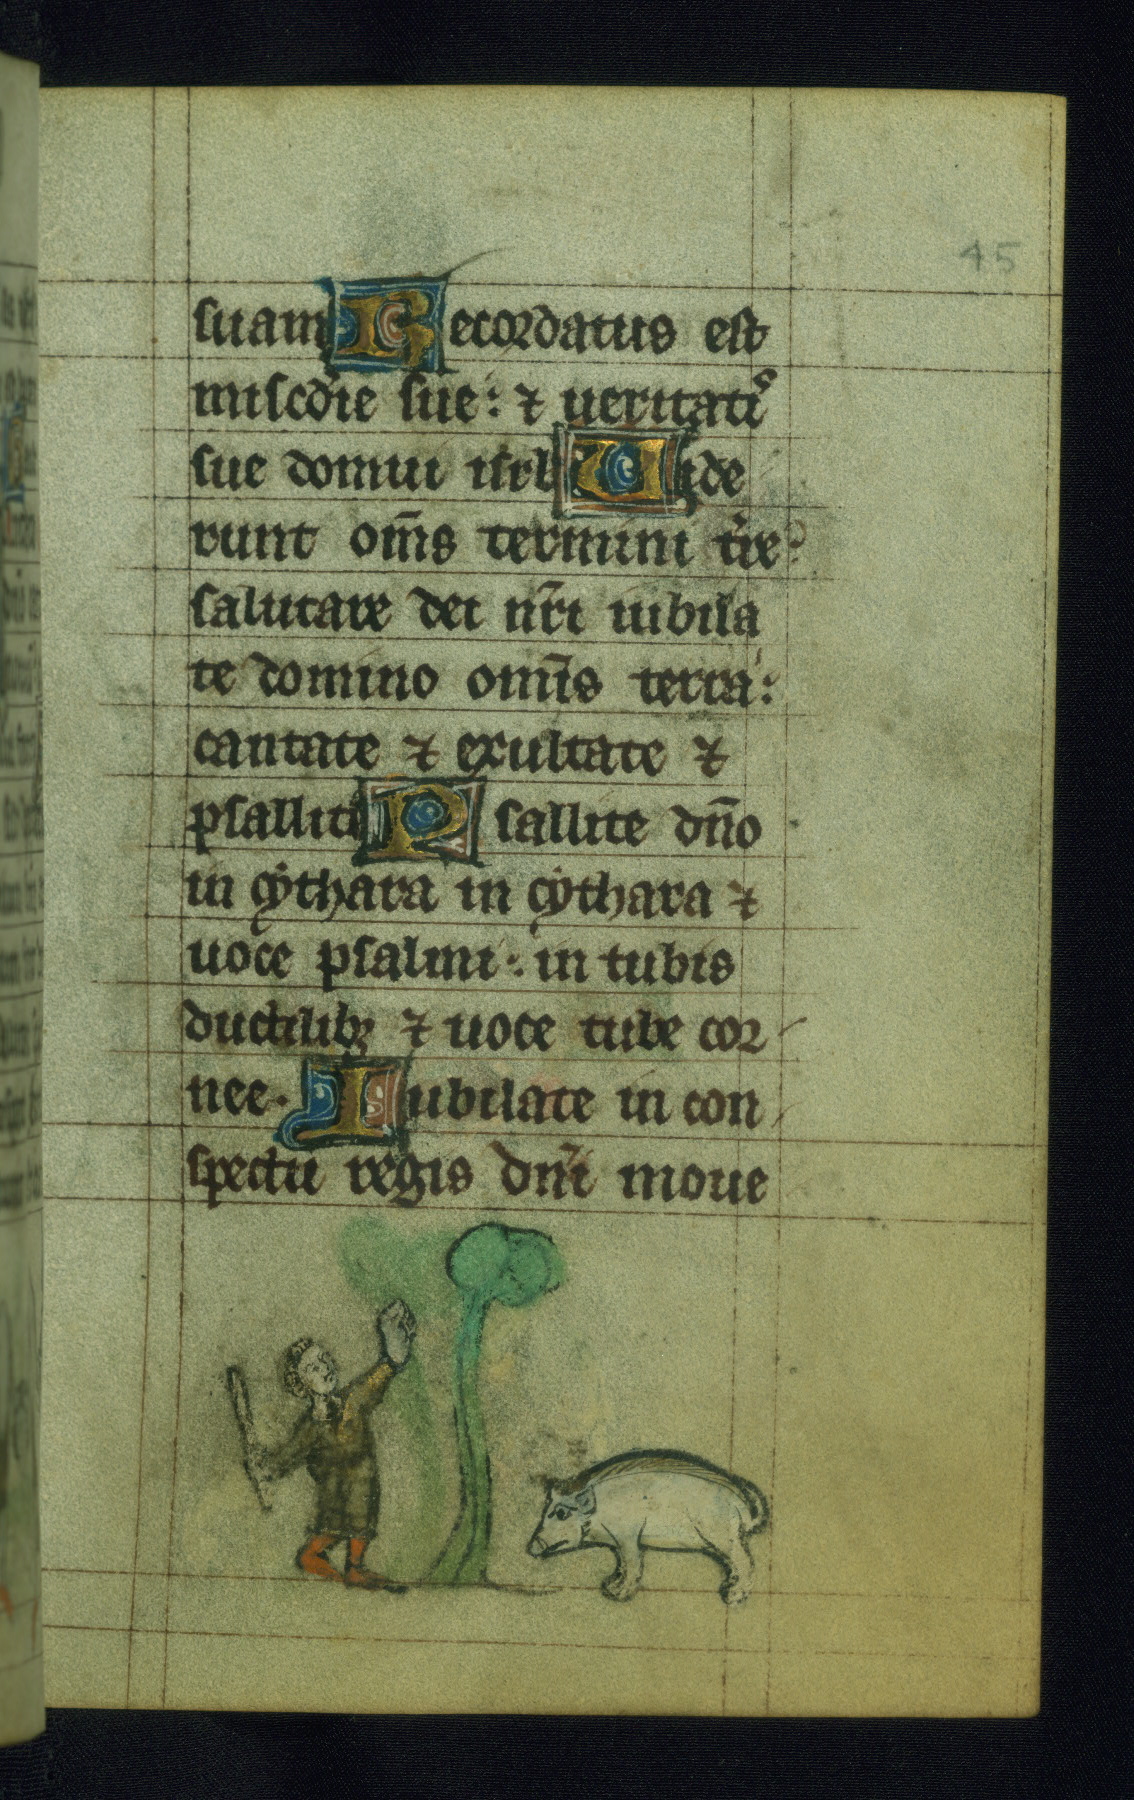 45
suam Recordatus est
misc̄die sue : ⁊ ueritatis
sue domui isrl Uide
runt om̄s termini tr̄e
salutare dei nr̄i iubila
te domino omīs terra :
cantate ⁊ exultate ⁊
psallite Psallite dn̄o
in cẏthara in cẏthara ⁊
uoce psalmi : in tubis
ductilibꝫ ⁊ uoce tube cor
nee . Iubilate in con
spectu regis dn̄i moue